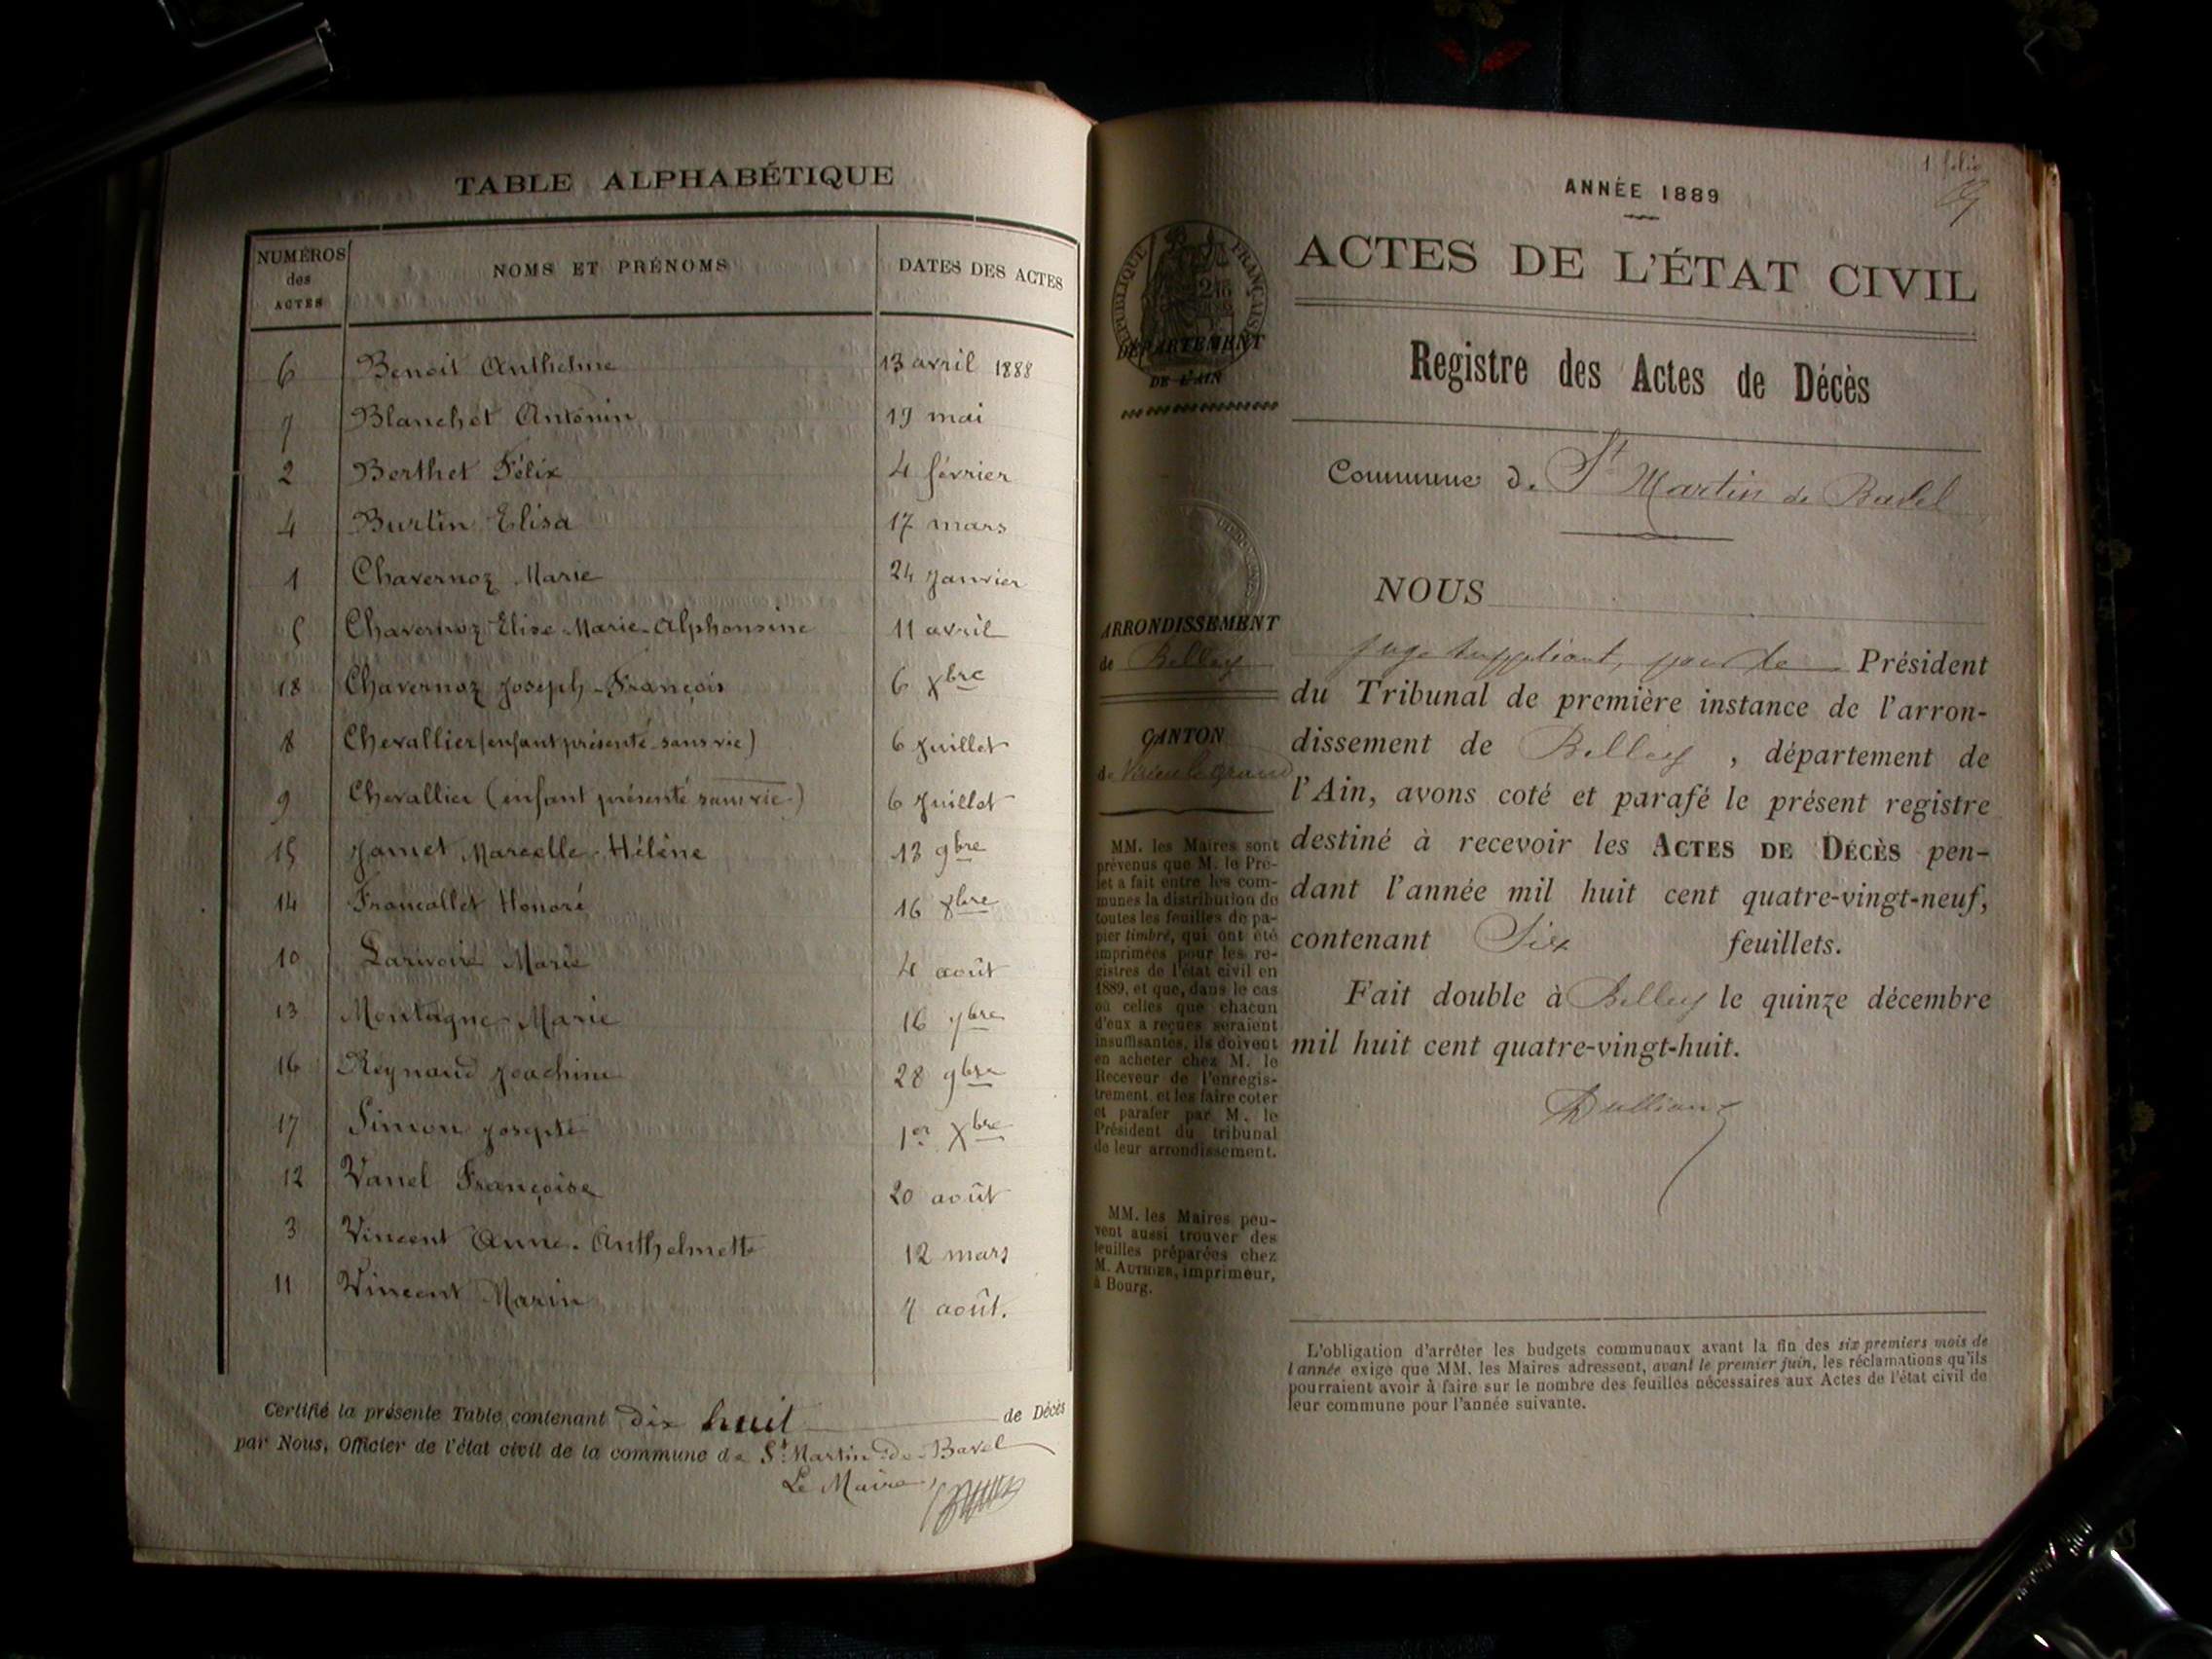 TABLE ALPHABÉTIQUE
NUMÉROS des ACTES NOMS ET PRÉNOMS DATES DES ACTES
6 Benoit Anthelme 13 avril 1888
7 Blanchet Antonin 19 mai
2 Berthet Félix 4 février
4 Burtin Elisa 17 mars
1 Chavernoz Marie 24 Janvier
5 Chavernoz Elise-Marie-Alphonsine 11 avril
18 Chavernoz Joseph-François 6 Xbre
8 Chevallier (enfant présenté sans vie) 6 Juillet
9 Chevallier (enfant présenté sans vie) 6 Juillet
15 Jamet Marcelle-Hélène 13 9bre
14 Francollet Honoré 16 8bre
10 Larivoire Marie 4 août
13 Montagne Marie 16 7bre
16 Reynaud Joachim 28 9bre
17 Simon Josepte 1er Xbre
12 Vanel Françoise 20 août
3 Vincent Anne-Anthelmette 12 mars
11 Vincent Marin 7 août.
Certifié la présente Table, contenant dix huit de Décès
par Nous, Officier de l'état civil de la commune de St Martin-de-Bavel
Le Maire,
1 folio
ANNÉE 1889
ACTES DE L'ÉTAT CIVIL
RÉPUBLIQUE FRANÇAISE
DÉPARTEMENT
DE L'AIN
Registre des Actes de Décès
Commune de St Martin de Bavel
NOUS
ARRONDISSEMENT
de Belley
juge suppléant, pour le Président
du Tribunal de première instance de l'arron-
dissement de Belley, département de
l'Ain, avons coté et parafé le présent registre
destiné à recevoir les ACTES DE DÉCÈS pen-
dant l'année mil huit cent quatre-vingt-neuf,
contenant Six feuillets.
Fait double à Belley le quinze décembre
mil huit cent quatre-vingt-huit.
CANTON
de Virieu le grand
MM. les Maires sont
prévenus que M. le Pré-
fet a fait entre les com-
munes la distribution de
toutes les feuilles de pa-
pier timbré, qui ont été
imprimées pour les re-
gistres de l'état civil en
1889, et que, dans le cas
où celles que chacun
d'eux a reçues seraient
insuffisantes, ils doivent
en acheter chez M. le
Receveur de l'enregis-
trement et les faire coter
et parafer par M. le
Président du tribunal
de leur arrondissement.
MM. les Maires peu-
vent aussi trouver des
feuilles préparées chez
M. AUTHIER, imprimeur,
à Bourg.
L'obligation d'arrêter les budgets communaux avant la fin des six premiers mois de
l'année exige que MM. les Maires adressent, avant le premier juin, les réclamations qu'ils
pourraient avoir à faire sur le nombre des feuilles nécessaires aux Actes de l'état civil de
leur commune pour l'année suivante.